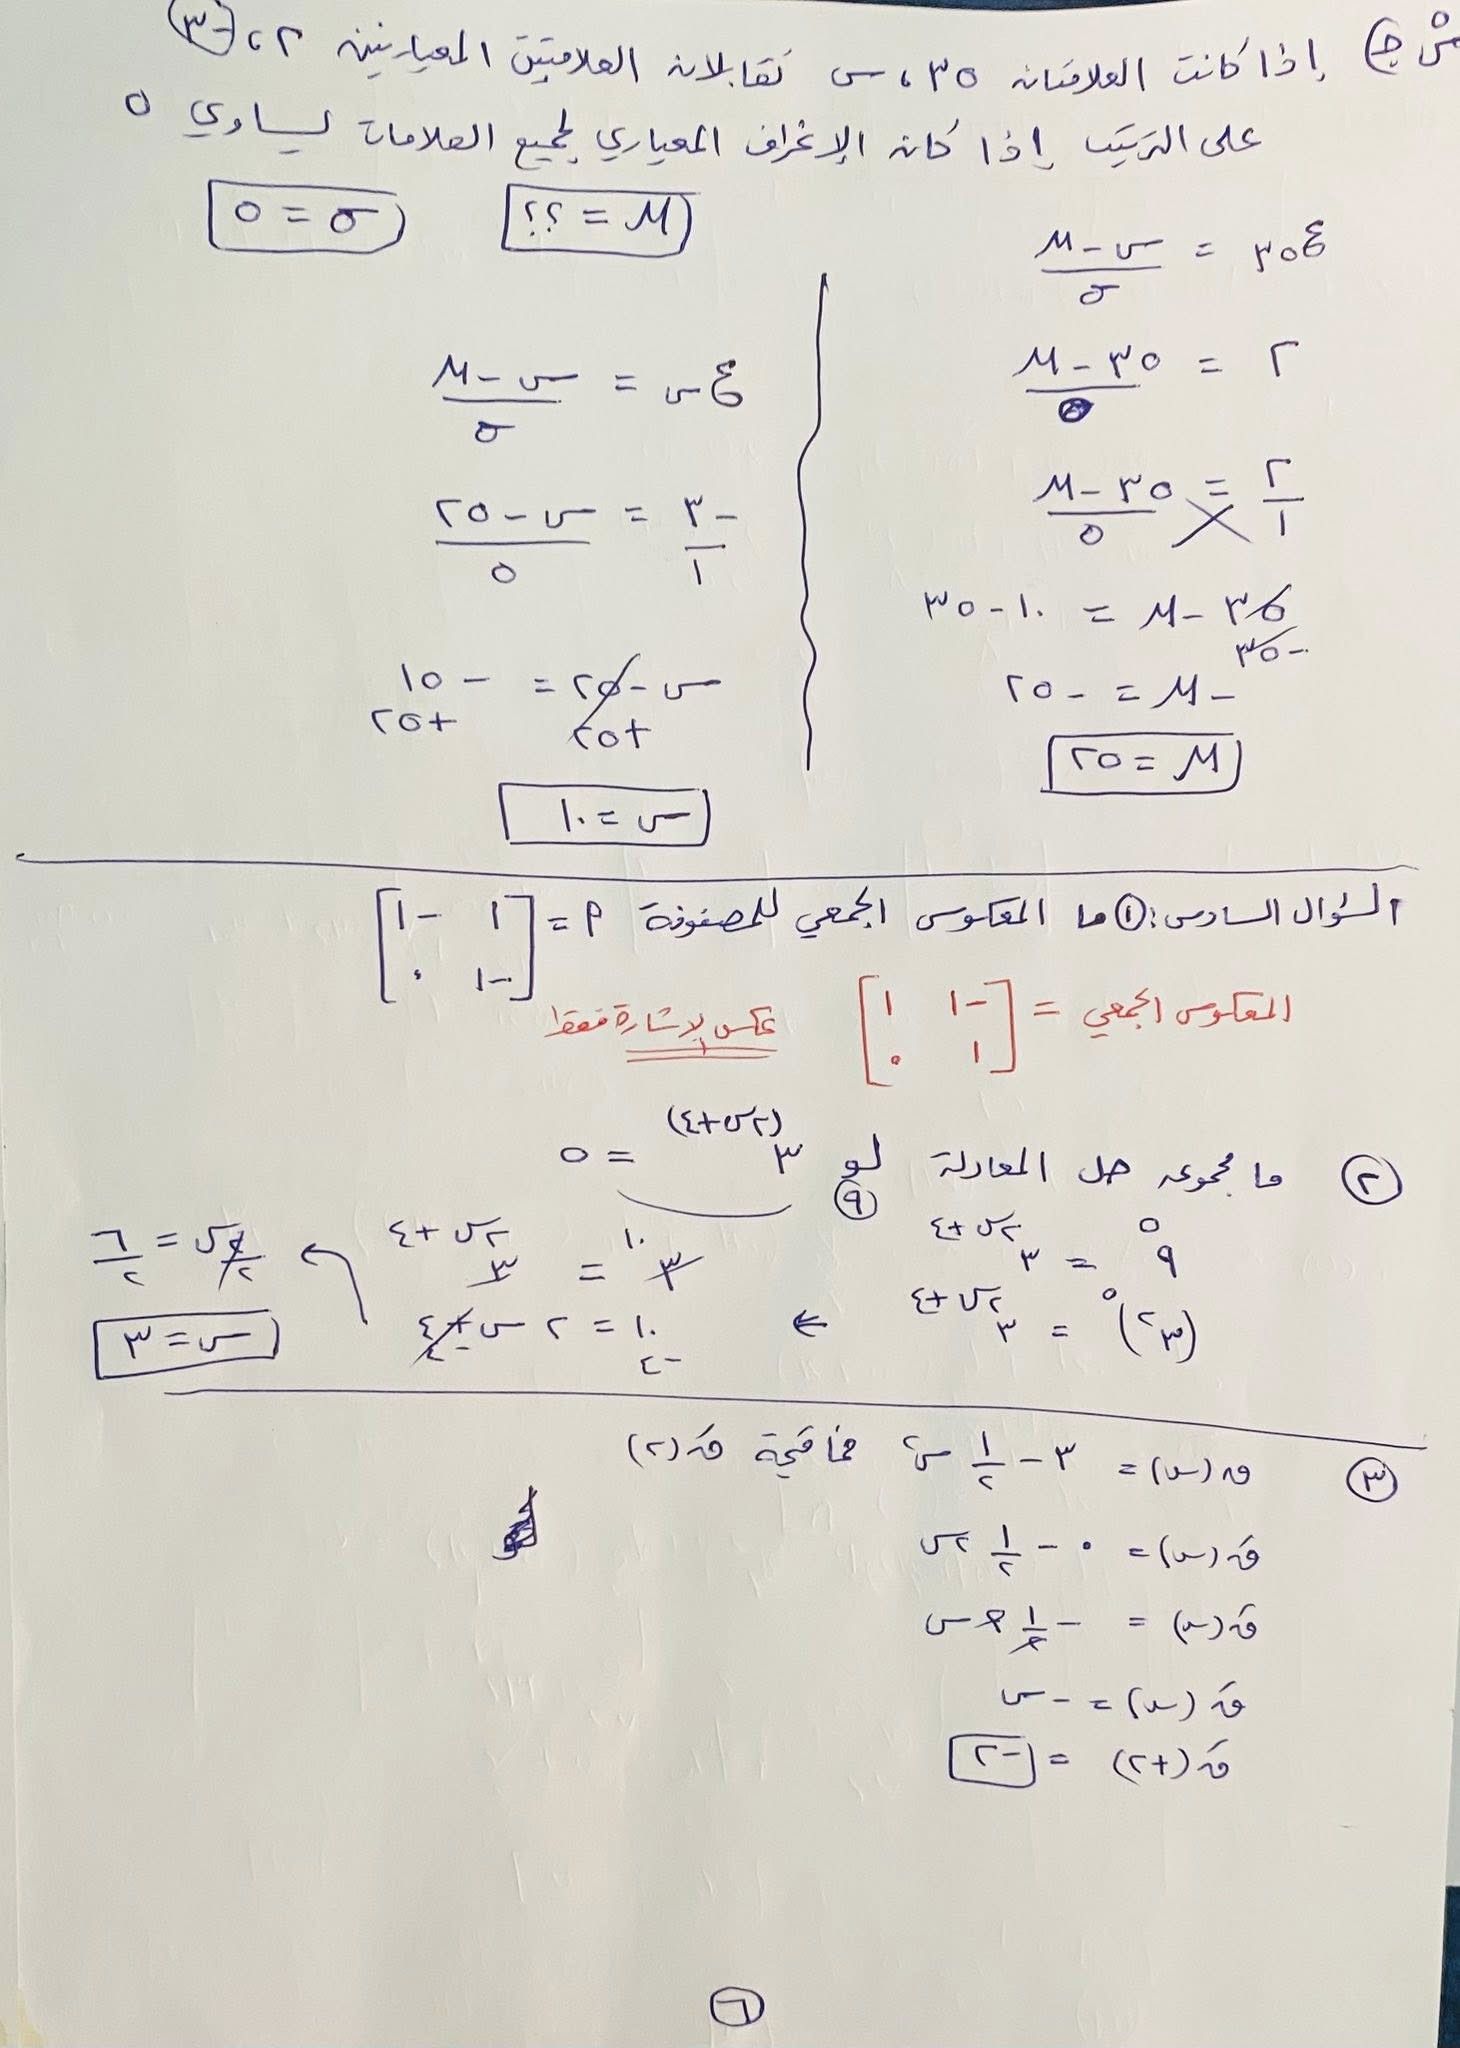 س ج) إذا كانت العلامتان ٣٥ ، س تقابلان العلامتين المعياريتين ٢ ، (-٣)
على الترتيب إذا كان الإنحراف المعياري لجميع العلامات يساوي ٥
M = ؟؟
σ = ٥
ع٣٥ = (س - M) / σ
٢ = (٣٥ - M) / ٥
٢/١ = (٣٥ - M) / ٥
٣٥ - M = ١٠ - ٣٥
-٣٥
- M = - ٢٥
M = ٢٥
عس = (س - M) / σ
-٣/١ = (س - ٢٥) / ٥
س - ٢٥ = - ١٥
+٢٥ +٢٥
س = ١٠
السؤال السادس: ① ما المعكوس الجمعي للمصفوفة P = [١ -١
-١ ٠]
المعكوس الجمعي = [-١ ١ عكس الإشارة فقط
١ ٠]
② ما مجموعة حل المعادلة لو٩ ٣^(٢س+٤) = ٥
٩^٥ = ٣^٢س+٤
(٣^٢)^٥ = ٣^٢س+٤ ←
٣^١٠ = ٣^٢س+٤
١٠ = ٢س + ٤
-٤ -٤
٢س/٢ = ٦/٢
س = ٣
③ ق(س) = ٣ - ١/٢ س² فما قيمة قَ(٢)
قَ(س) = ٠ - ١/٢ ٢س
قَ(س) = - ١/٢ ٢ س
قَ(س) = - س
قَ(+٢) = -٢
٦